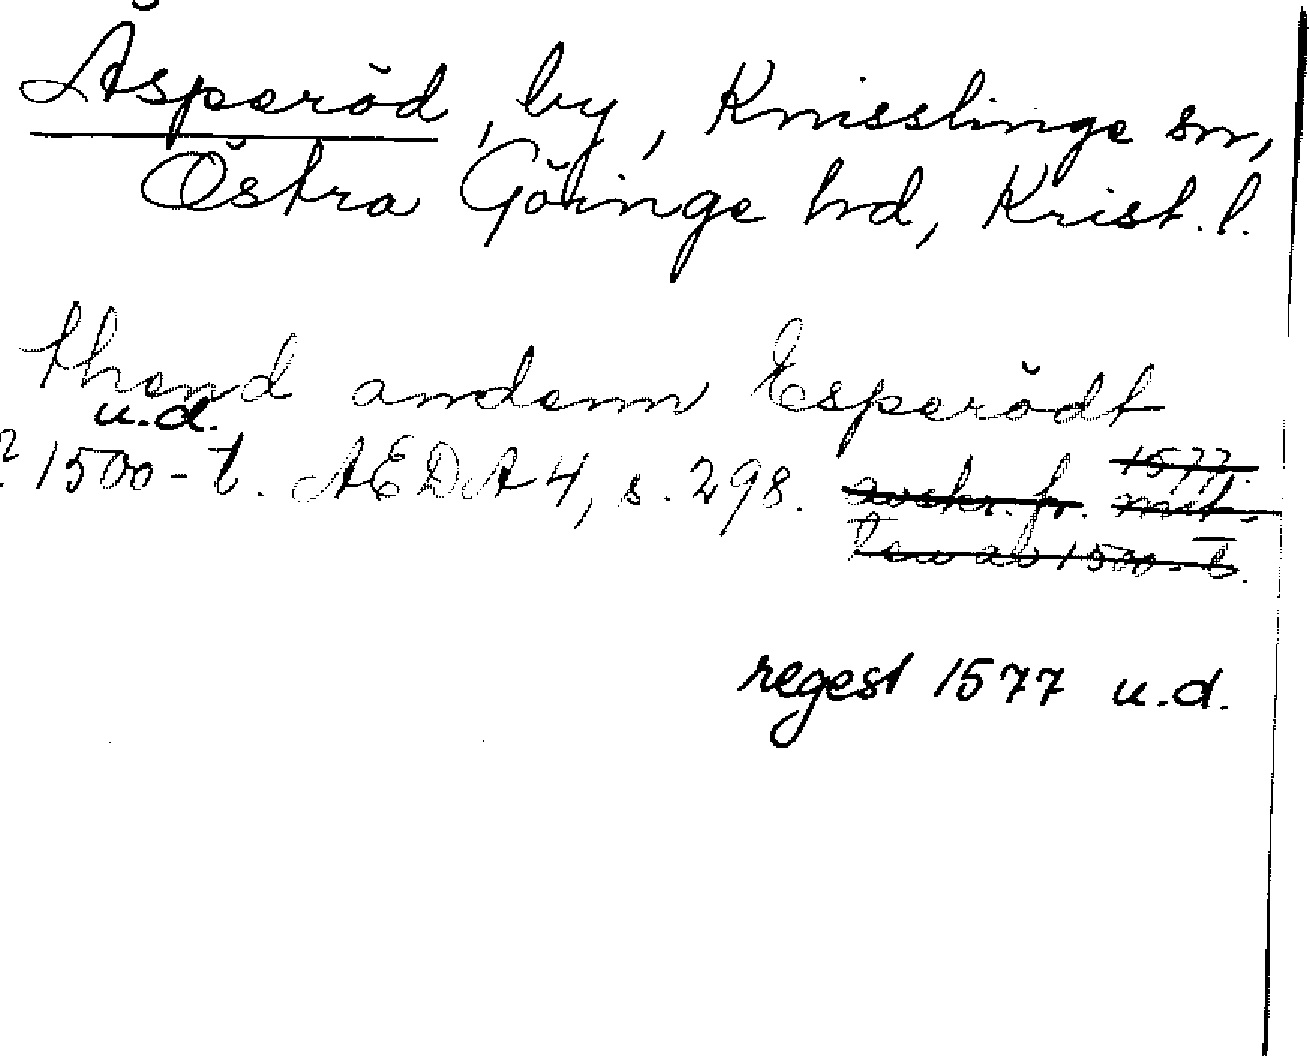 Åsperöd, by, Knisslinge sn,
Östra Göinge hd, Krist. l.
thend andenn Esperödt
u.d.
? 1500-t. AEDA 4, s. 298. avskr. fr. mit- 1577.
ten av 1500-t.
regest 1577 u.d.